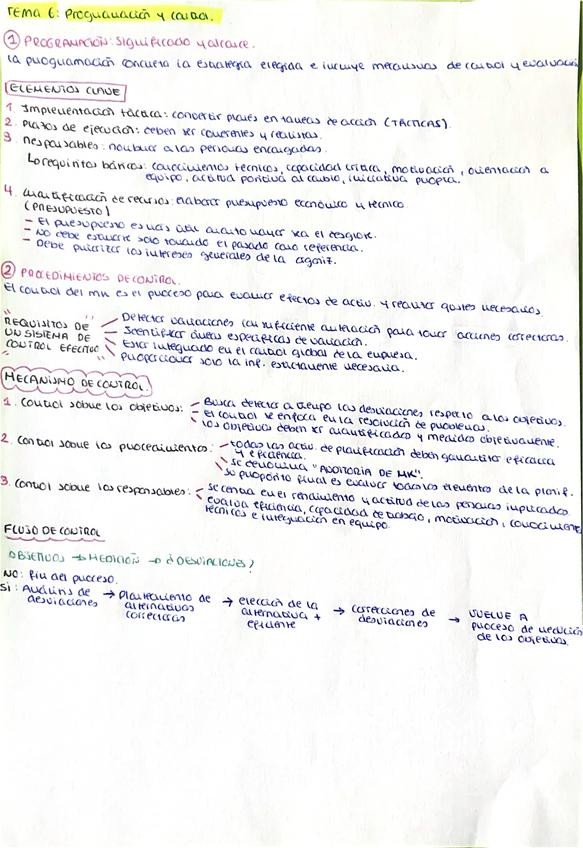 TEMA 6: Programación y control.
① PROGRAMACIÓN: significado y alcance.
La programación concreta la estrategia elegida e incluye mecanismos de control y evaluación
ELEMENTOS CLAVE
1. Implementación táctica: convertir planes en tareas de acción (TÁCTICAS).
2. Plazos de ejecución: deben ser coherentes y realistas.
3 Responsables: nombrar a las personas encargadas.
↳ requisitos básicos: conocimientos técnicos, capacidad crítica, motivación, orientación a
equipo, actitud positiva al cambio, iniciativa propia.
4. Cuantificación de recursos: elaborar presupuesto económico y técnico
(PRESUPUESTO)
- El presupuesto es más útil cuanto mayor sea el desglose.
- No debe estimarse solo tomando el pasado como referencia.
- Debe priorizar los intereses generales de la organiz.
② PROCEDIMIENTOS DE CONTROL.
El control del MK es el proceso para evaluar efectos de activ. y realizar ajustes necesarios.
"REQUISITOS DE
UN SISTEMA DE
CONTROL EFECTIVO"
- Detectar variaciones con suficiente antelación para tomar acciones correctoras.
- Identificar áreas específicas de variación.
- Estar integrado en el control global de la empresa.
- Proporcionar solo la inf. estrictamente necesaria.
MECANISMO DE CONTROL.
1. Control sobre los objetivos: - Busca detectar a tiempo las desviaciones respecto a los objetivos.
- El control se enfoca en la resolución de problemas.
- los objetivos deben ser cuantificados y medidos objetivamente.
2. Control sobre los procedimientos: - todas las activ. de planificación deben garantizar eficacia
y eficiencia.
- se denomina "AUDITORÍA DE MK".
- su propósito final es evaluar todos los elementos de la planif.
3. Control sobre los responsables: - se centra en el rendimiento y actitud de las personas implicadas
- evalúa eficiencia, capacidad de trabajo, motivación, conocimientos
técnicos e integración en equipo.
FLUJO DE CONTROL
OBJETIVOS → MEDICIÓN → ¿DESVIACIONES?
NO: fin del proceso.
SI: Análisis de desviaciones → Planteamiento de alternativas correctoras → elección de la alternativa + eficiente → correcciones de desviaciones → VUELVE A proceso de medición de los objetivos.